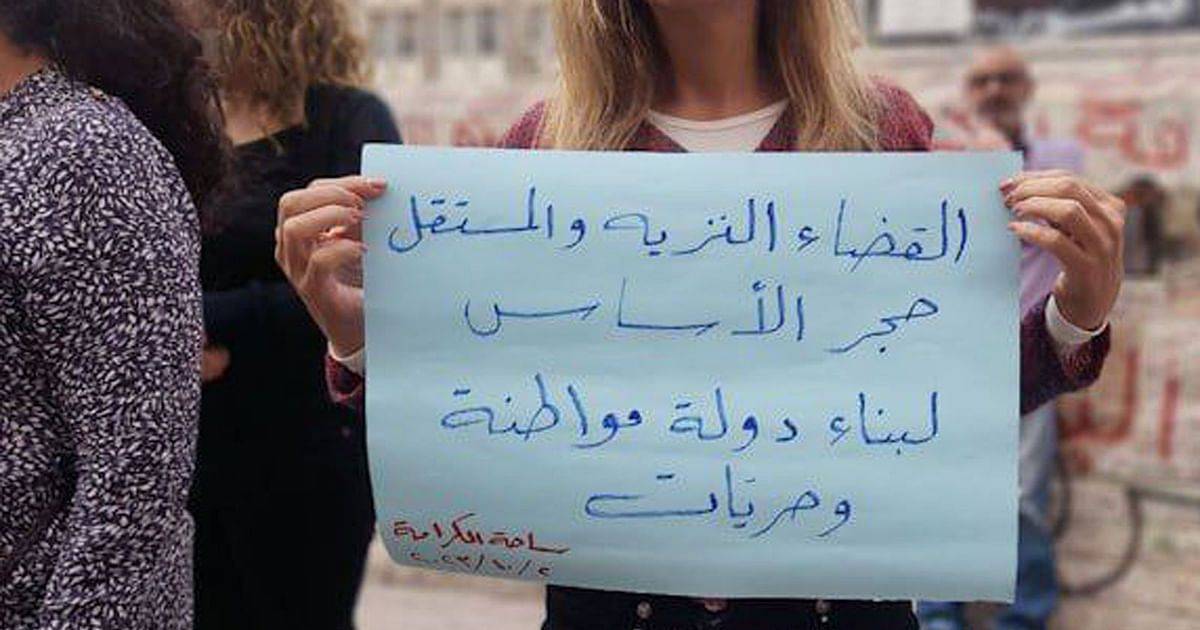 القضاء النزيه والمستقل
حجر الأساس
لبناء دولة مواطنة
وحريات
ساحة الكرامة
٢٠٢٣/١٠/٢